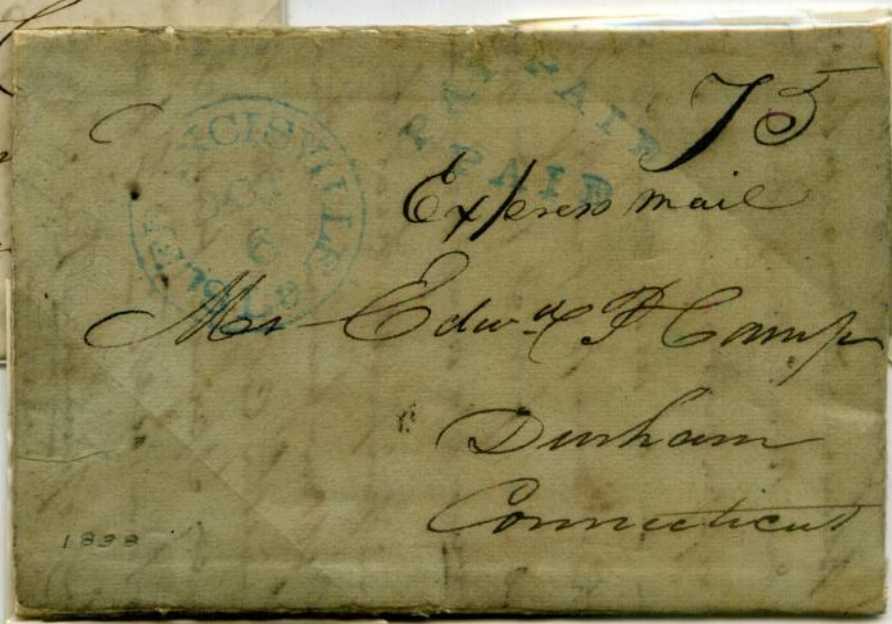 CISVILLE
OCT
6
PAID
75
Express Mail
Mr Edwd P Camp
Durham
Connecticut